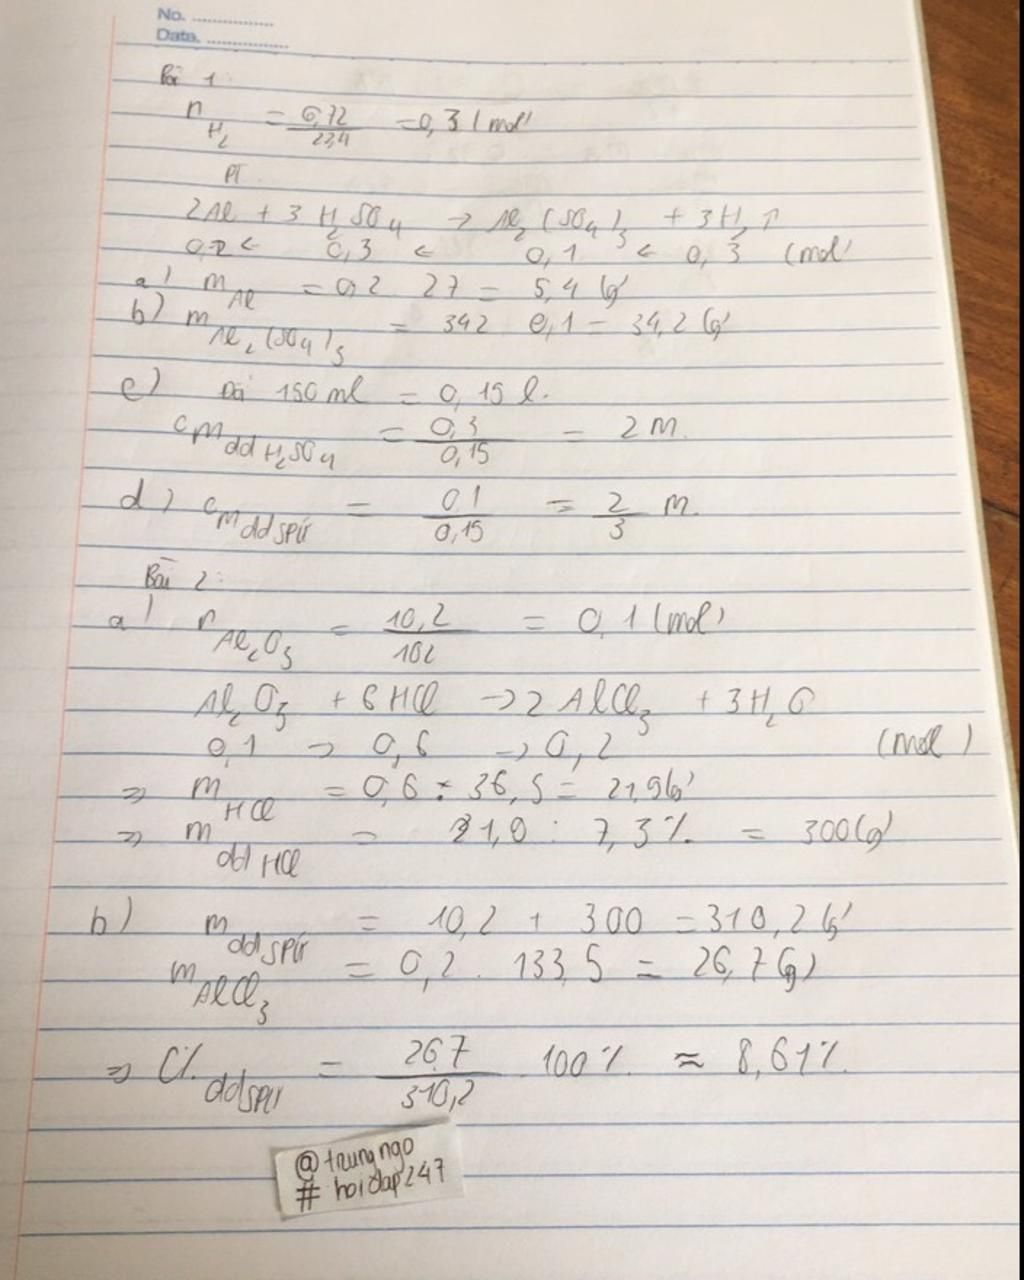 No. ............
Date. ............
Bài 1:
n H₂ = 6,72/22,4 = 0,3 (mol)
PT
2Al + 3H₂SO₄ → Al₂(SO₄)₃ + 3H₂↑
0,2 ← 0,3 ← 0,1 ← 0,3 (mol)
a) m Al = 0,2 27 = 5,4 (g)
b) m Al₂(SO₄)₃ = 342 0,1 = 34,2 (g)
c) Đổi 150 ml = 0,15 l.
CM dd H₂SO₄ = 0,3/0,15 = 2 M.
d) CM dd spư = 0,1/0,15 = 2/3 M.
Bài 2:
a) n Al₂O₃ = 10,2/102 = 0,1 (mol)
Al₂O₃ + 6HCl → 2AlCl₃ + 3H₂O
0,1 → 0,6 → 0,2 (mol)
=> m HCl = 0,6 . 36,5 = 21,9 (g)
=> m dd HCl = 21,9 : 7,3% = 300 (g)
b) m dd spư = 10,2 + 300 = 310,2 (g)
m AlCl₃ = 0,2 . 133,5 = 26,7 (g)
=> C% dd spư = 26,7/310,2 . 100% ≈ 8,61%
@trungngo
# hoidap247